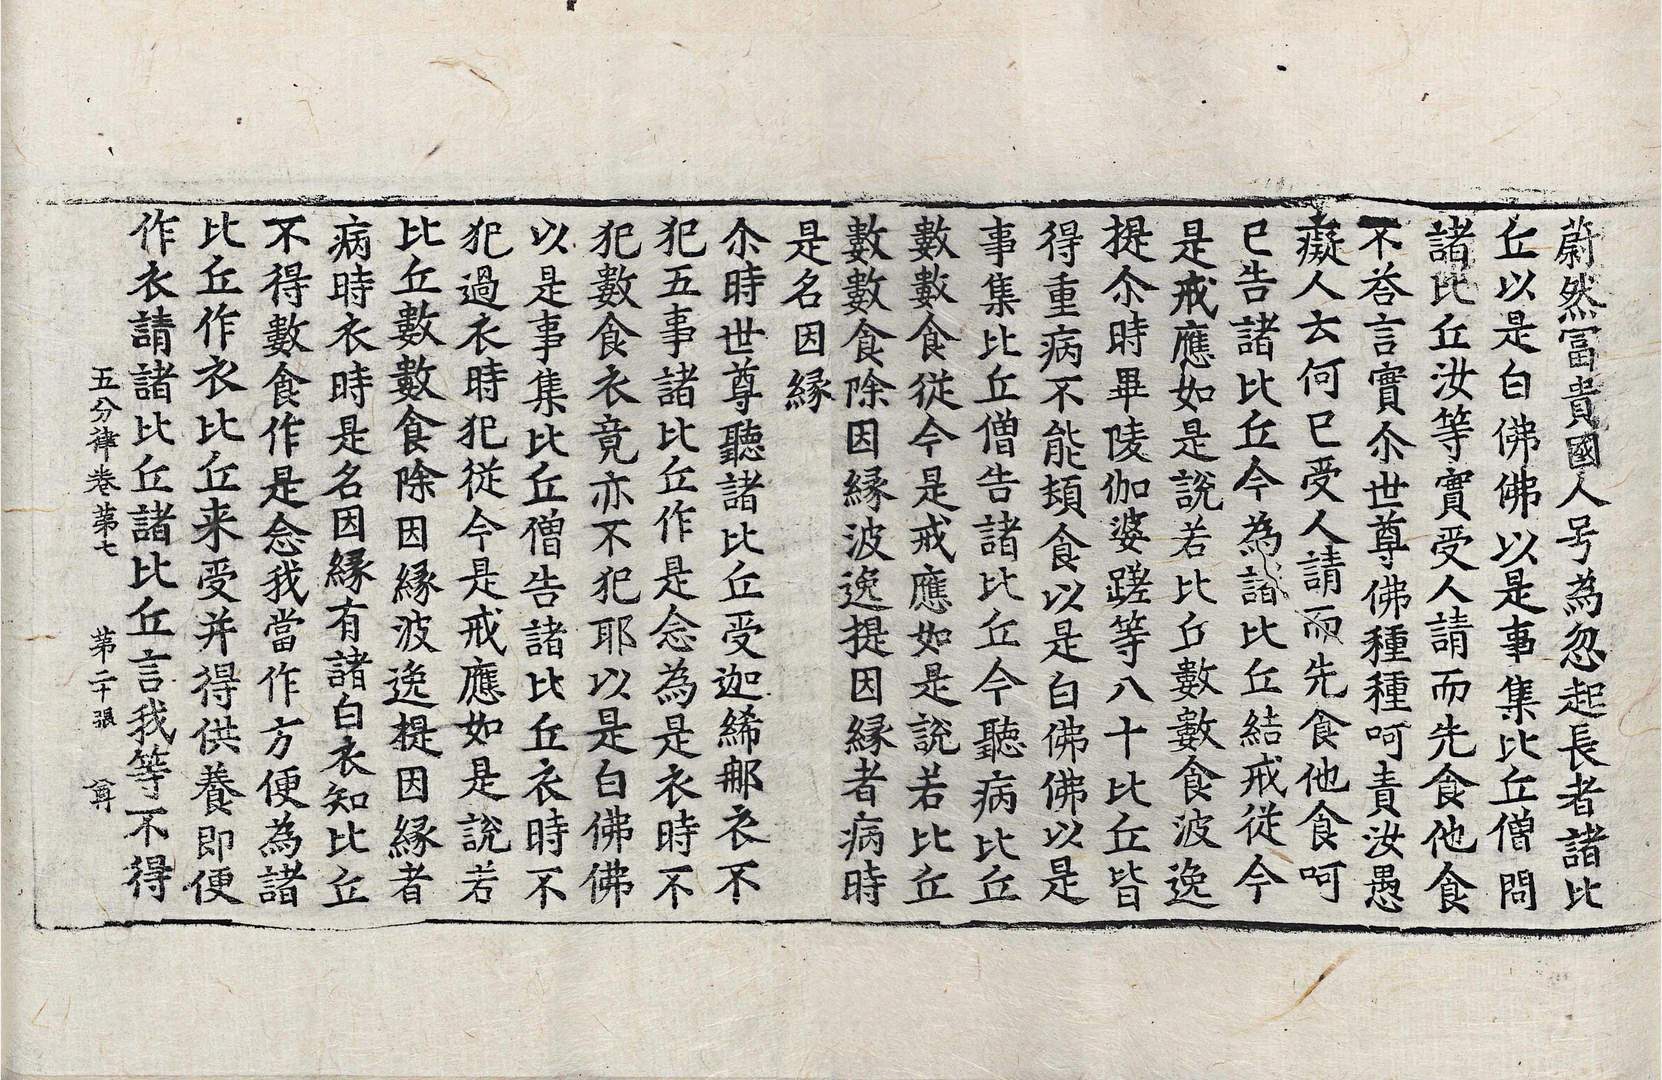 蔚然冨貴國人号為忽起長者諸比
丘以是白佛佛以是事集比丘僧問
諸比丘汝等實受人請而先食他食
不荅言實尒世尊佛種種呵責汝愚
癡人云何已受人請而先食他食呵
已告諸比丘今為諸比丘結戒従今
是戒應如是說若比丘數數食波逸
提尒時畢陵伽婆蹉等八十比丘皆
得重病不能頓食以是白佛佛以是
事集比丘僧告諸比丘今聽病比丘
數數食従今是戒應如是說若比丘
數數食除因縁波逸提因縁者病時
是名因縁
尒時世尊聽諸比丘受迦絺𨚗衣不
犯五事諸比丘作是念為是衣時不
犯數食衣竟亦不犯耶以是白佛佛
以是事集比丘僧告諸比丘衣時不
犯過衣時犯従今是戒應如是說若
比丘數數食除因縁波逸提因縁者
病時衣時是名因縁有諸白衣知比丘
不得數食作是念我當作方便為諸
比丘作衣比丘来受并得供養即便
作衣請諸比丘諸比丘言我等不得
五分律卷苐七 苐二十張